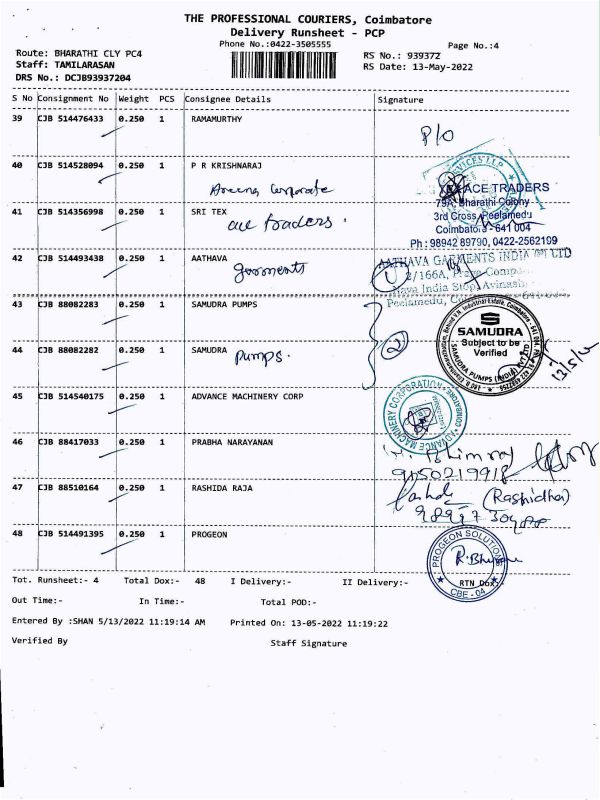 THE PROFESSIONAL COURIERS, Coimbatore
Delivery Runsheet - PCP
Phone No.:0422-3505555
Page No.:4
Route: BHARATHI CLY PC4
Staff: TAMILARASAN
DRS No.: DCJB93937204
RS No.: 939372
RS Date: 13-May-2022
S No Consignment No Weight PCS Consignee Details Signature
39 CJB 514476433 0.250 1 RAMAMURTHY
P/O
40 CJB 514528094 0.250 1 P R KRISHNARAJ
Corporate
SERVICES LLP
ACE TRADERS
79A, Bharathi Colony
3rd Cross, Peelamedu
Coimbatore - 641 004
Ph : 98942 89790, 0422-2562199
41 CJB 514356998 0.250 1 SRI TEX
ace traders.
42 CJB 514493438 0.250 1 AATHAVA
garments
AATHAVA GARMENTS INDIA (P) LTD
1
2/166A,
India Stop, Avinashi
Peelamedu,
43 CJB 88082283 0.250 1 SAMUDRA PUMPS
44 CJB 88082282 0.250 1 SAMUDRA
pumps.
2
SAMUDRA
Subject to be
Verified
SAMUDRA PUMPS (INDIA) PVT LTD
13/5/22
45 CJB 514540175 0.250 1 ADVANCE MACHINERY CORP
ADVANCE MACHINERY CORPORATION
COIMBATORE
46 CJB 88417033 0.250 1 PRABHA NARAYANAN
9150219918
47 CJB 88510164 0.250 1 RASHIDA RAJA
(Rashidha)
48 CJB 514491395 0.250 1 PROGEON
PROGEON SOLUTIONS
RTN Dox:-
CBE - 04
Tot. Runsheet:- 4 Total Dox:- 48 I Delivery:- II Delivery:-
Out Time:- In Time:- Total POD:-
Entered By :SHAN 5/13/2022 11:19:14 AM Printed On: 13-05-2022 11:19:22
Verified By Staff Signature